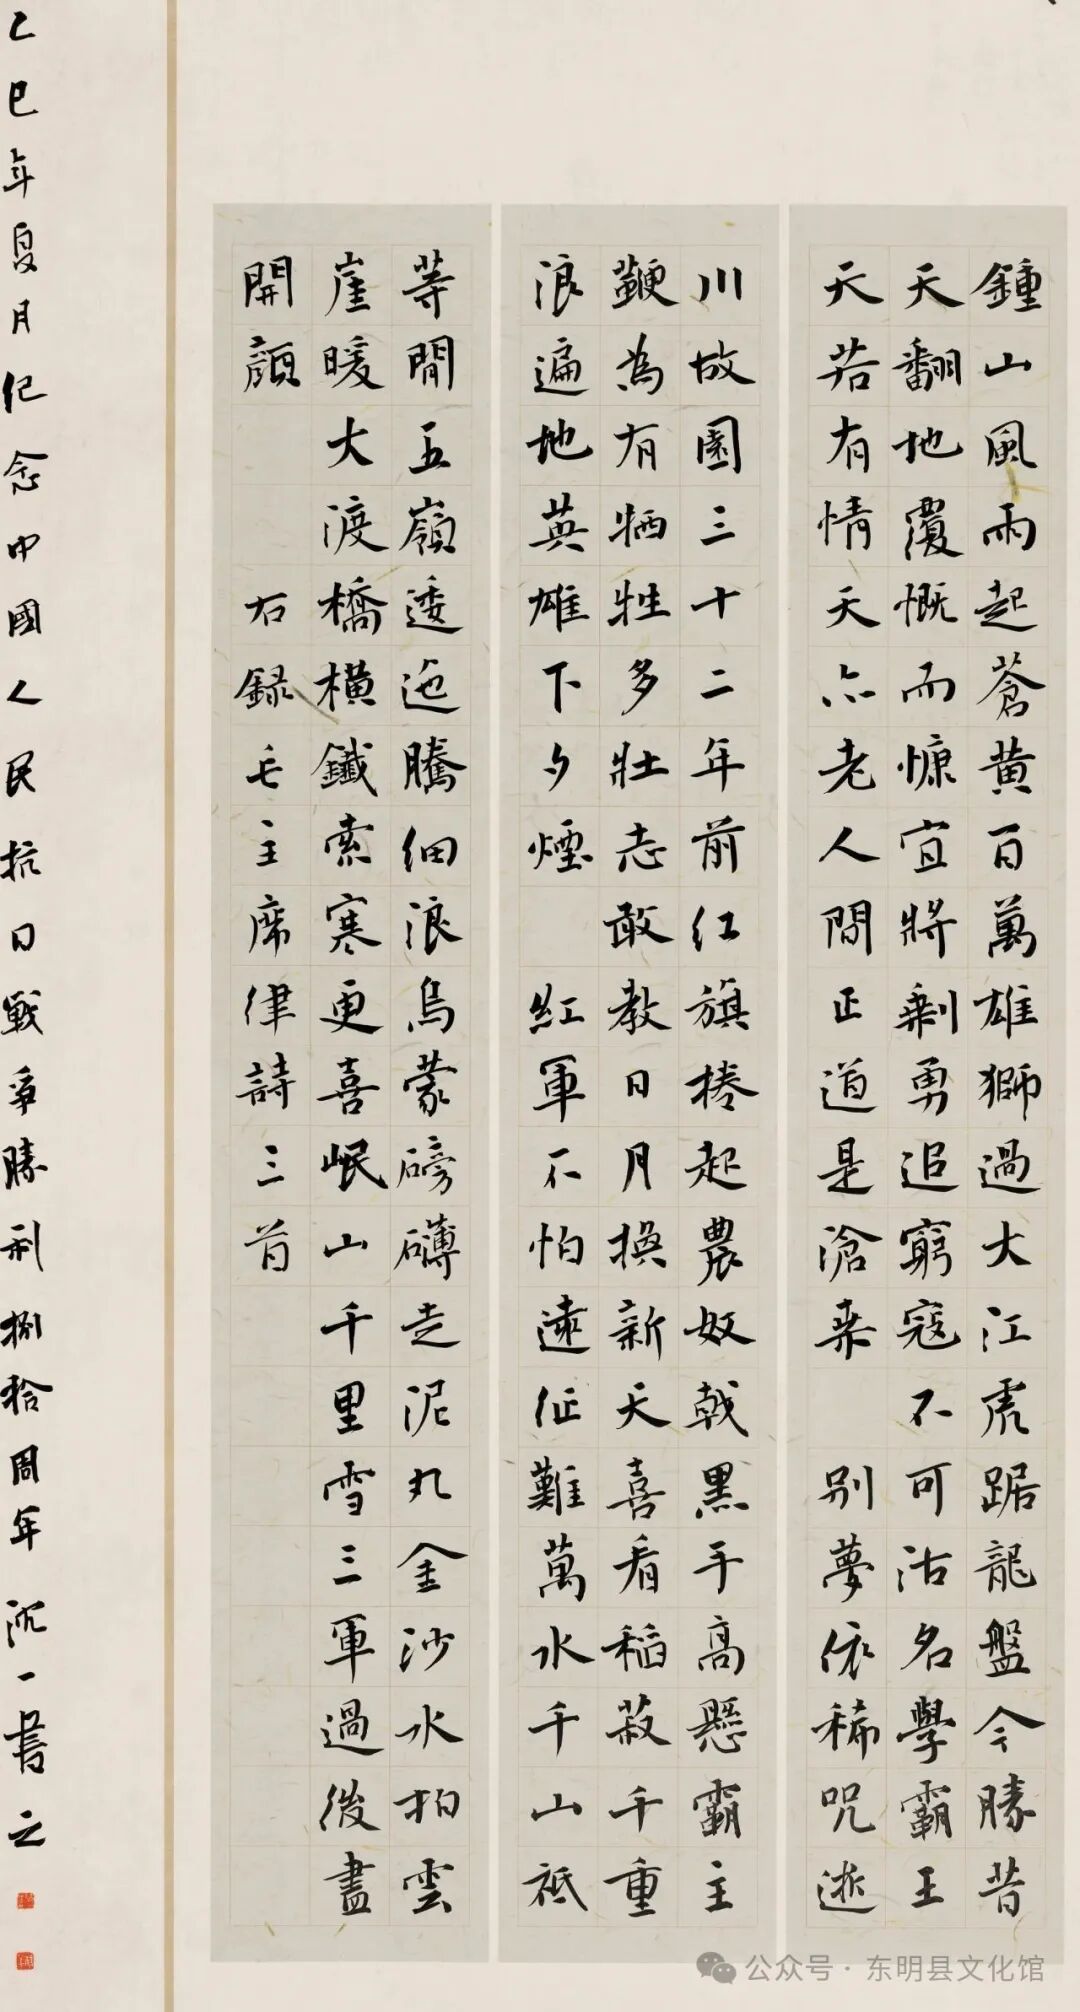 鍾山風雨起蒼黃百萬雄獅過大江虎踞龍盤今勝昔
天翻地覆慨而慷宜將剩勇追窮寇不可沽名學霸王
天若有情天亦老人間正道是滄桒 別夢依稀咒逝
川故園三十二年前紅旗捲起農奴戟黑手高懸霸主
鞭為有牺牲多壯志敢教日月換新天喜看稻菽千重
浪遍地英雄下夕煙 紅軍不怕遠征難萬水千山祗
等閒五嶺逶迤騰細浪烏蒙磅礴走泥丸金沙水拍雲
崖暖大渡橋橫鐵索寒更喜岷山千里雪三軍過後盡
開顏 右録毛主席律詩三首
乙巳年夏月纪念中國人民抗日戰爭勝利捌拾周年 沈一書之
公众号 · 东明县文化馆